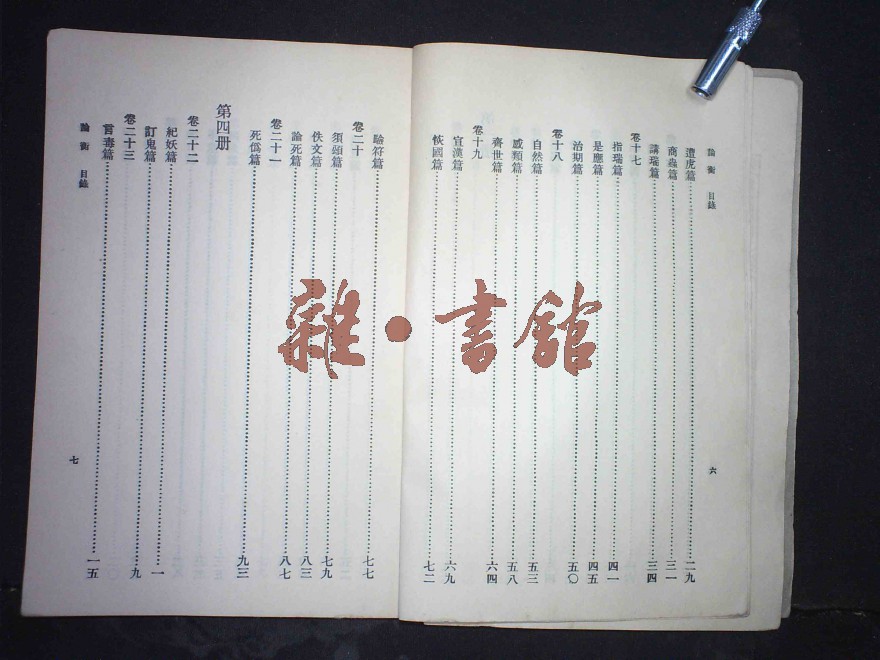 論衡 目錄
遭虎篇 二九
商蟲篇 三一
講瑞篇 三四
卷十七
指瑞篇 四一
是應篇 四五
治期篇 五〇
卷十八
自然篇 五三
感類篇 五八
齊世篇 六四
卷十九
宣漢篇 六九
恢國篇 七二
六
驗符篇 七七
卷二十
須頌篇 七九
佚文篇 八三
論死篇 八七
卷二十一
死僞篇 九三
第四册
卷二十二
紀妖篇 一
訂鬼篇 九
卷二十三
言毒篇 一五
論衡 目錄
七
雜·書館